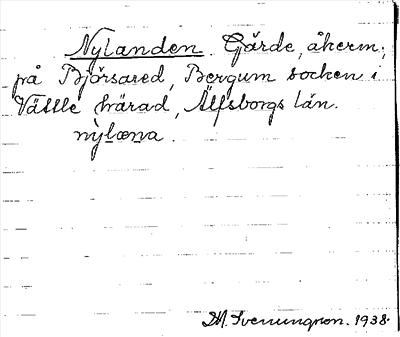 Nylanden. Gärde, åkerm.
på Björsared, Bergum socken i
Vättle härad, Älfsborgs län.
nỳlæna.
M. Svenungson. 1938.